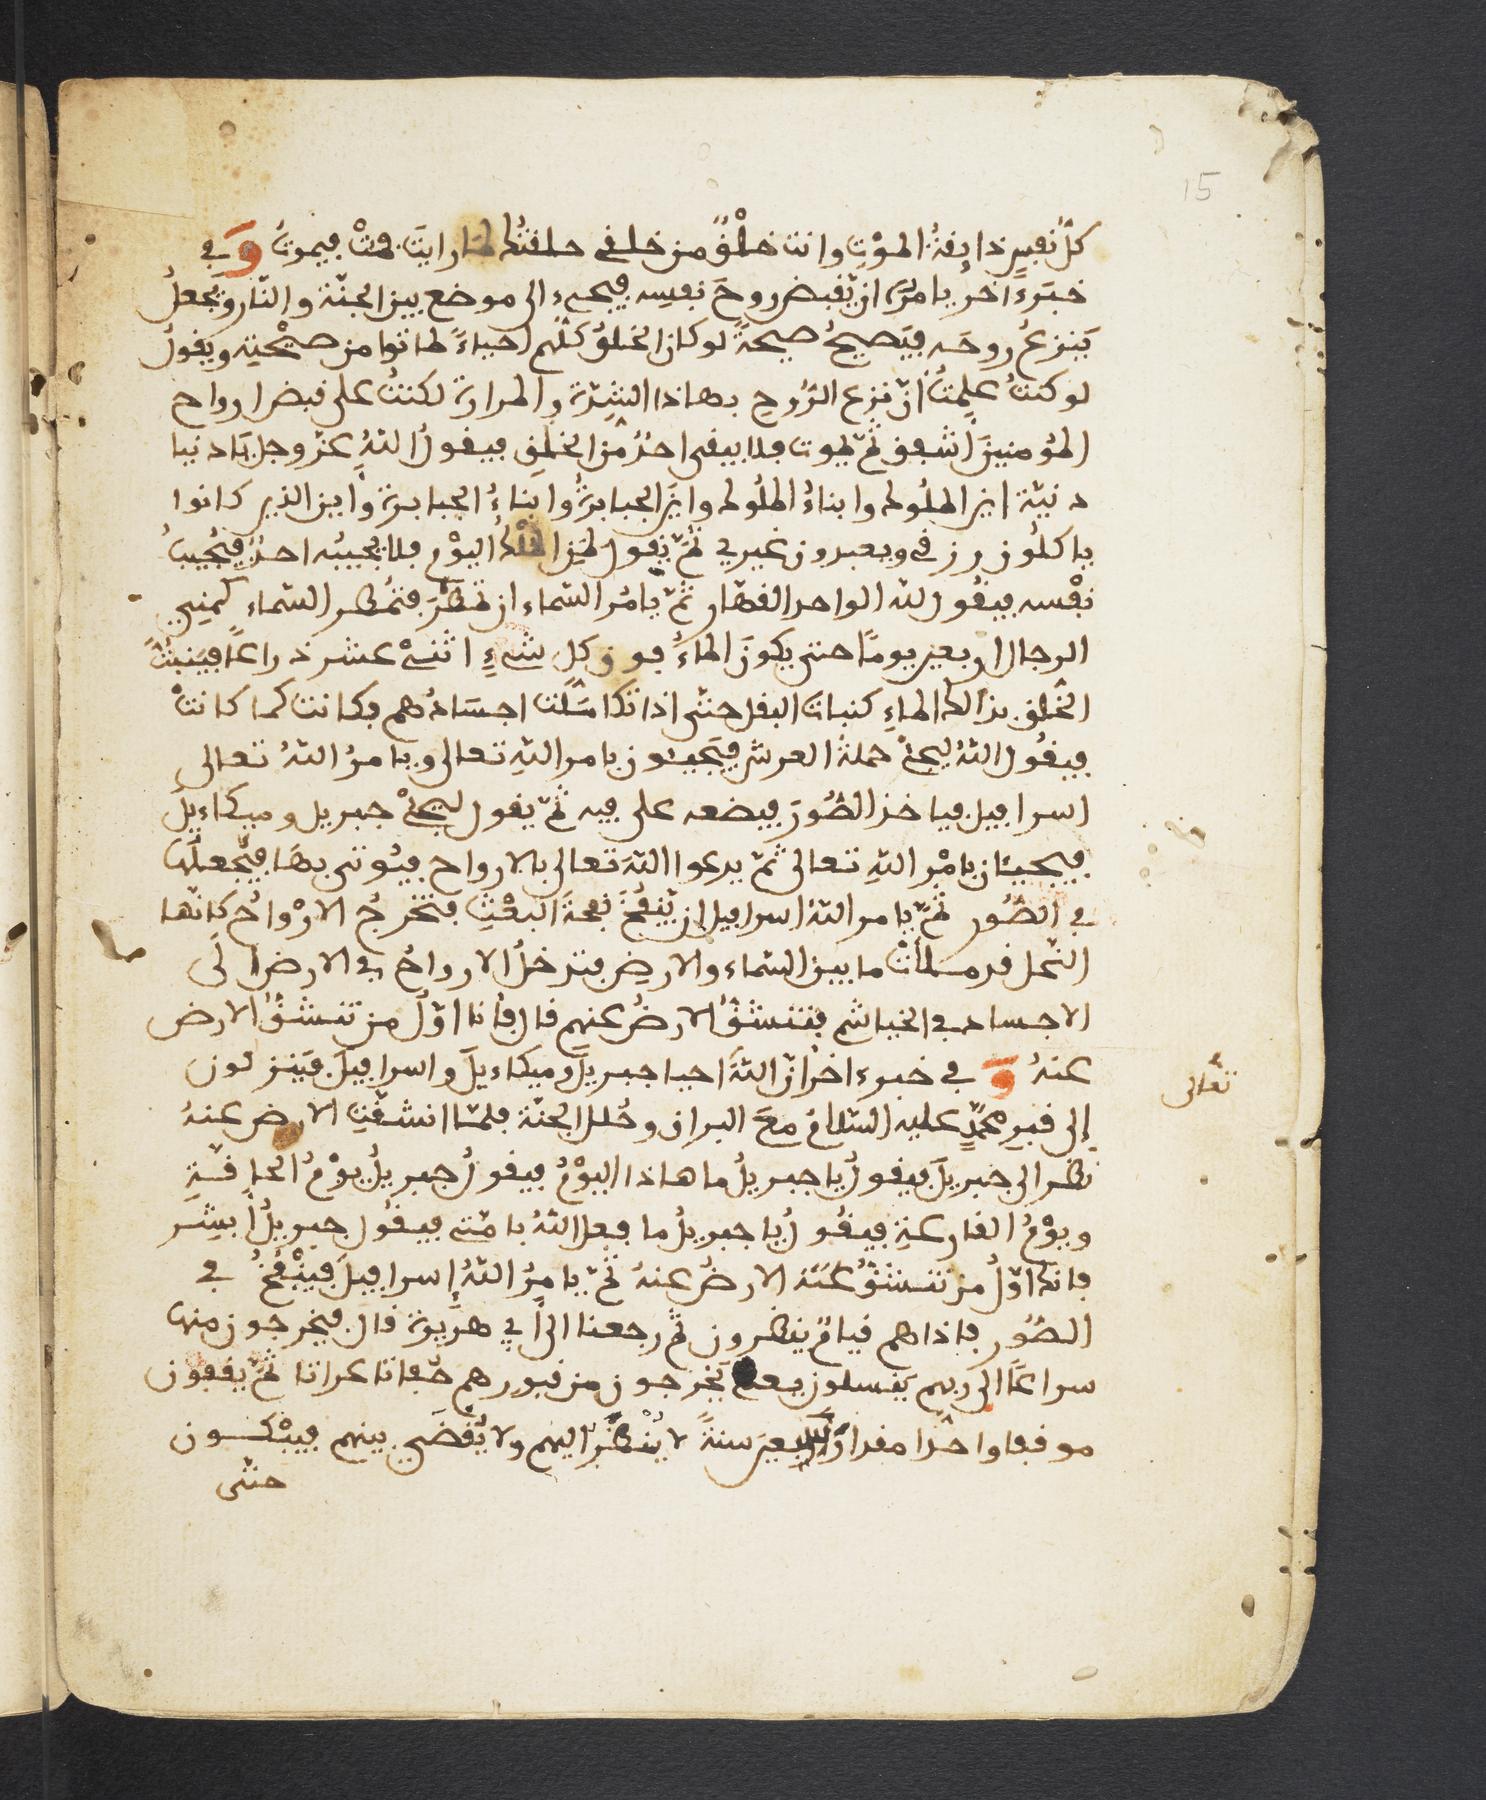 15
كلّ نفسٍ ذايقة الموْتِ وانت خلْقٌ من خلفي خلقتك لما رايت فمتْ فيموتُ وَفي
خبرء اخر يامره ان يقبض روحَ نفسِه فيجيء الى موضع بين الجنّة والنّار ويجعلُ
يَنزعُ روحَه فيَصيحُ صيحةً لو كان الخلقُ كلّهم احياءً لماتوا من صيْحتِه ويقولُ
لو كنتُ عَلِمتُ انّ نزع الرّوحِ بهاذا الشِدّة والمرارة لكنتُ على قبض ارواح
المؤمنينَ اشفق ثمّ يموت فلا يبقى احدٌ من الخلقِ فيقولُ اللّهُ عزّ وجلّ يَا دنيا
دنيّة اين الملُوك وابناءُ الملُوك واينَ الجبابرةُ وابناءُ الجبابرة واين الذين كانوا
ياكلُون رزقي ويعبدون غيري ثمّ يقول لمَنِ الملْكُ اليوْم فلا يجيبُه احدٌ فيُجيبُ
نفْسه فيقُول للّه الواحد القهّار ثمّ يامُر السّماء ان تمطرَ فتُمطر السّماء كمنيّ
الرجال اربعين يومًا حتى يكونَ الماءُ فوق كلِ شيءٍ اثنيْ عشر ذراعًا فيَنبتُ
الخلق بذالك الماءِ كنبات البقل حتّى اذا تكاملت اجسَادُهم فكانت كما كانتْ
فيقُول اللّهُ ليحيْ حملةُ العرش فيَحييون بامر اللّهِ تعالى ويامرُ اللّهُ تعالى
اسرافيل فياخذ الصُّورَ فيضعه على فيه ثمّ يقول ليحيْ جبريل وميكاءيل
فيحييان بامْرِ اللّهِ تعالى ثمّ يدعوا اللّهَ تعالى بالارواح فيُوتى بهَا فيَجعلُها
في الصُّور ثمّ يامر اللّهُ اسرافيل ان يَنفُخَ نفخةَ البعْثِ فتخرجُ الارْواحُ كانّها
النّحل قد ملأتْ ما بين السّماء والارضِ فتدخلُ الارواحُ في الارض الَى
الاجساد في الخياشم فتنشقّ الارضُ عنهم قال فانا اوّلُ من تنشقُّ الارض
عنهُ وَفي خبرء اخر انّ اللّهَ تعالى احيا جبريلَ وميكاءيلَ واسرافيلَ فيَنزلون
إلى قبرِ محمّدٍ عليه السّلامُ معَ البراق وحُلل الجنّة فلمّا انشقّتِ الارض عنهُ
نظر الى جبريلَ فيقولُ يا جبريلُ ما هاذا اليوْمُ فيقولُ جبريلُ يوْمُ الحاقّةِ
ويوْمُ القارعةِ فيقُولُ يا جبريلُ ما فعل اللّهُ بامّتي فيقُول جبريلُ أبشِر
فانك اوّلُ من تنشقُّ عنه الارضُ عنهُ ثمّ يامرُ اللّهُ إسرافيلَ فينْفُخُ في
الصُّور فاذا هم قيامٌ ينظرون ثمّ رجعنا الى ابي هريرة قال فيخرجون منها
سراعًا الى ربّهم يَنسلون يعني يَخرجون من قبورهم حُفاتا عراتا ثمّ يقفون
موقفا واحدًا مقدارَ سبعينَ سنةً لا يُنْظَرُ اليهم ولا يُقضَى بينهم فيبْكون
حتّى